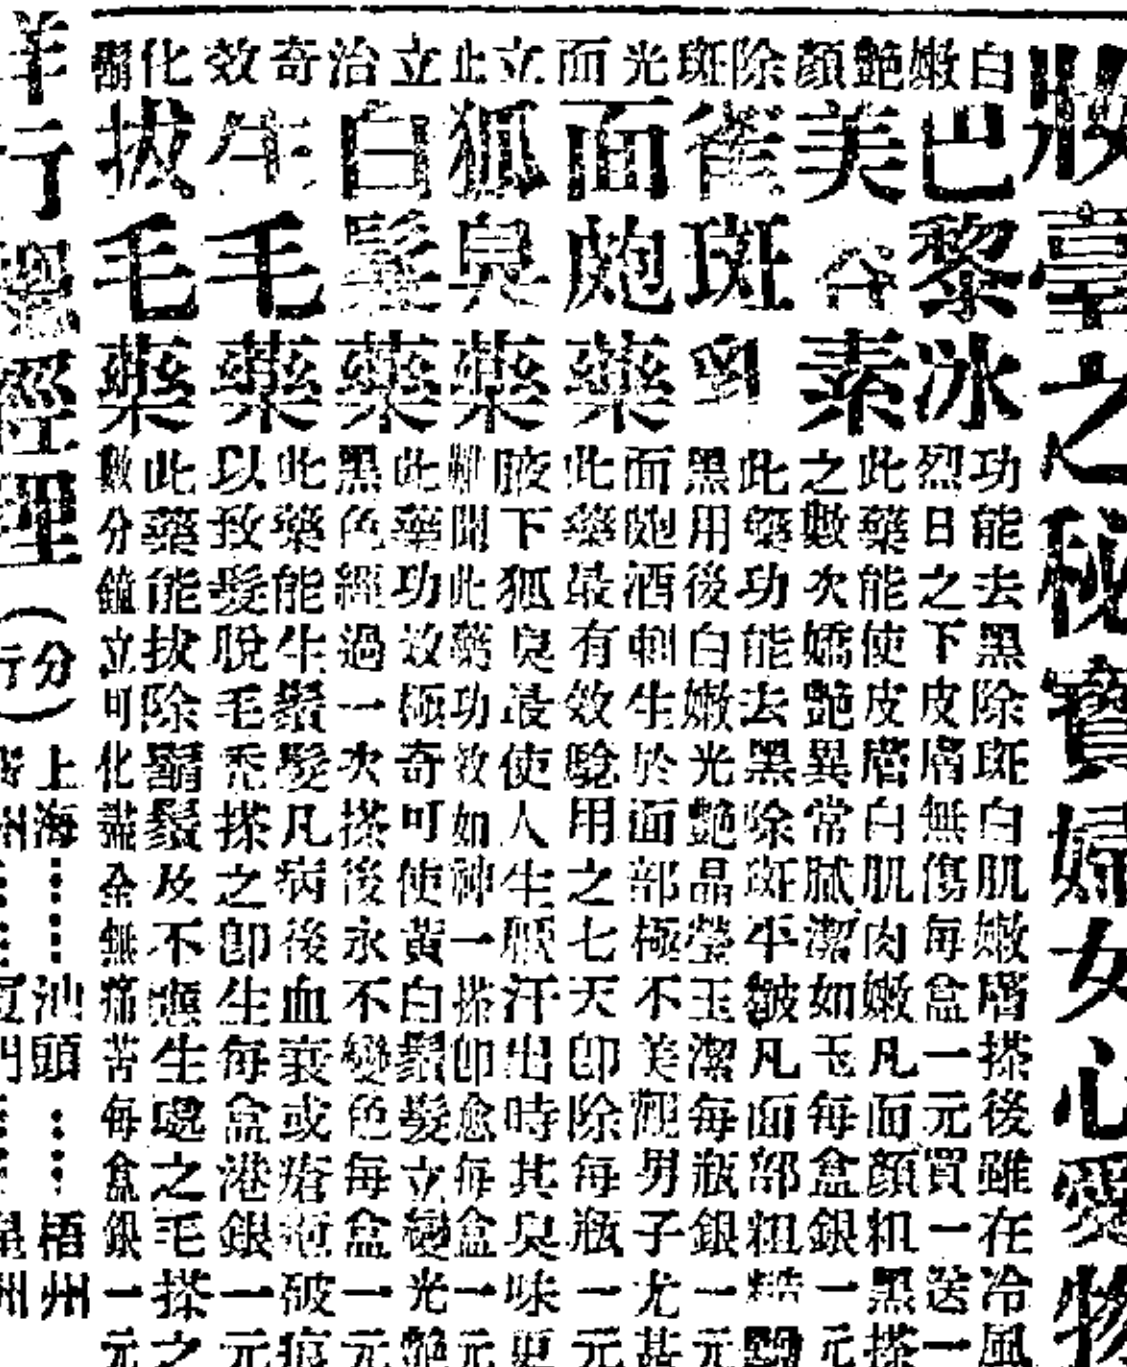 妝臺之秘寶婦女心愛物
白嫩艷顏除斑光面立此立治奇效化鬍
巴黎冰
功能去黑除斑白肌嫩層搽後雖在冷風
烈日之下皮層無傷每盒一元買一送一
美容素
此藥能使皮層白肌肉嫩凡面顏粗黑搽
之數次嬌艷異常膩潔如玉每盒銀一元
雀斑
此藥功能去黑除斑平皺凡面部粗糙黝
黑用後白嫩光艷晶瑩玉潔每瓶銀一元
面皰藥
面皰酒刺生於面部極不美觀男子尤甚
此藥最有效驗用之七天即除每瓶一元
狐臭藥
腋下狐臭最使人生厭汗出時其臭味更
難聞此藥功效如神一搽即愈每盒一元
白髮藥
此藥功效極奇可使黃白鬚髮立變光艷
黑色經過一次搽後永不變色每盒一元
生毛藥
此藥能生鬚髮凡病後血衰或瘡疤破痕
以致髮脫毛禿搽之即生每盒港銀一元
拔毛藥
此藥能拔除鬍鬚及不應生處之毛搽之
數分鐘立可化盡全無痛苦每盒銀一元
洋行總經理（分行）
上海……汕頭……梧州